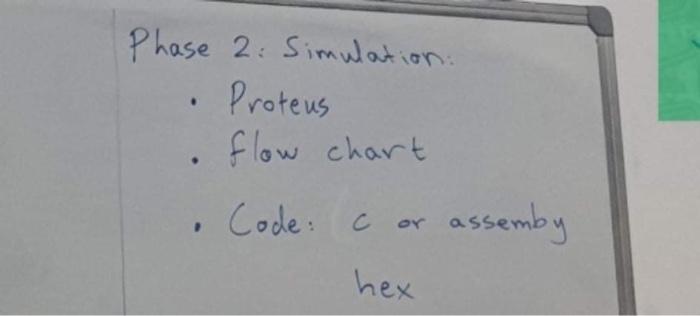 Phase 2: Simulation:
• Proteus
• flow chart
• Code: c or assemby
hex